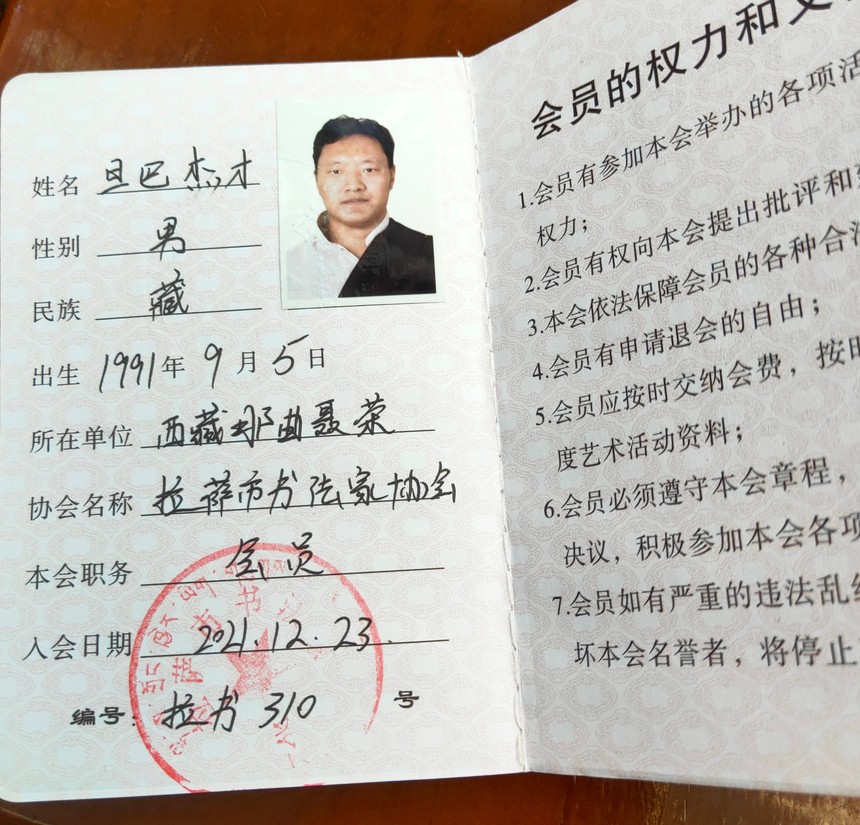 姓名 旦巴杰才
性别 男
民族 藏
出生 1991年 9月 5日
所在单位 西藏那曲聂荣
协会名称 拉萨市书法家协会
本会职务 会员
入会日期 2021.12.23.
编号: 拉书 310 号
会员的权力和义
1.会员有参加本会举办的各项活
权力;
2.会员有权向本会提出批评和
3.本会依法保障会员的各种合法
4.会员有申请退会的自由;
5.会员应按时交纳会费，按时
度艺术活动资料;
6.会员必须遵守本会章程，
决议，积极参加本会各项
7.会员如有严重的违法乱纪
坏本会名誉者，将停止